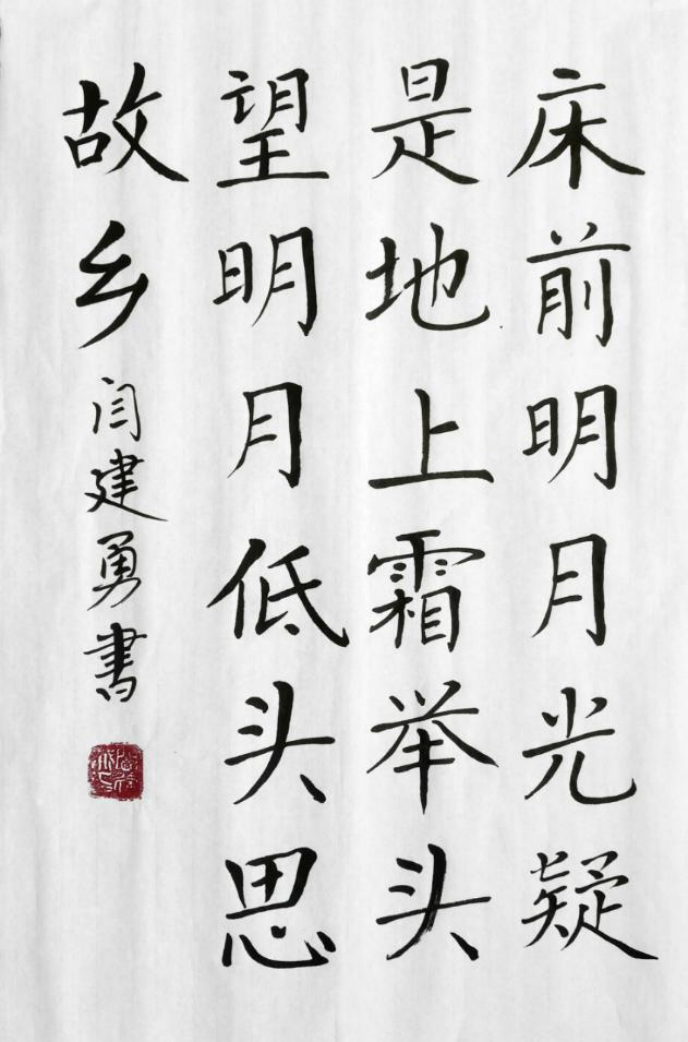 床前明月光疑
是地上霜举头
望明月低头思
故乡
闫建勇書